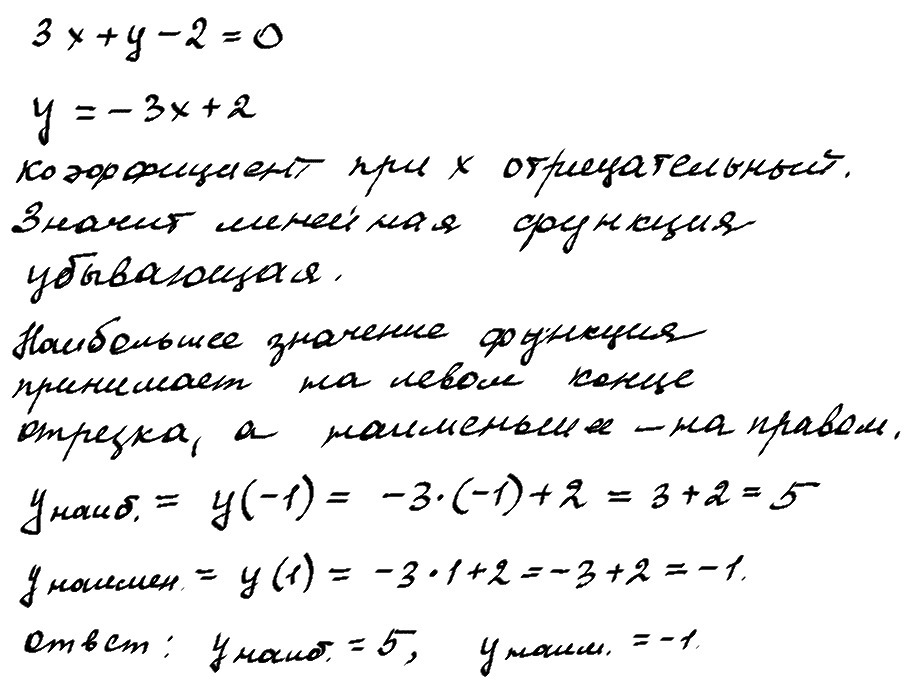 3x + y - 2 = 0
y = - 3x + 2
коэффициент при x отрицательный.
Значит линейная функция
убывающая.
Наибольшее значение функция
принимает на левом конце
отрезка, а наименьшее - на правом.
y наиб. = y(-1) = -3·(-1) + 2 = 3 + 2 = 5
y наимен. = y(1) = -3·1 + 2 = -3 + 2 = -1.
ответ: y наиб. = 5, y наим. = -1.